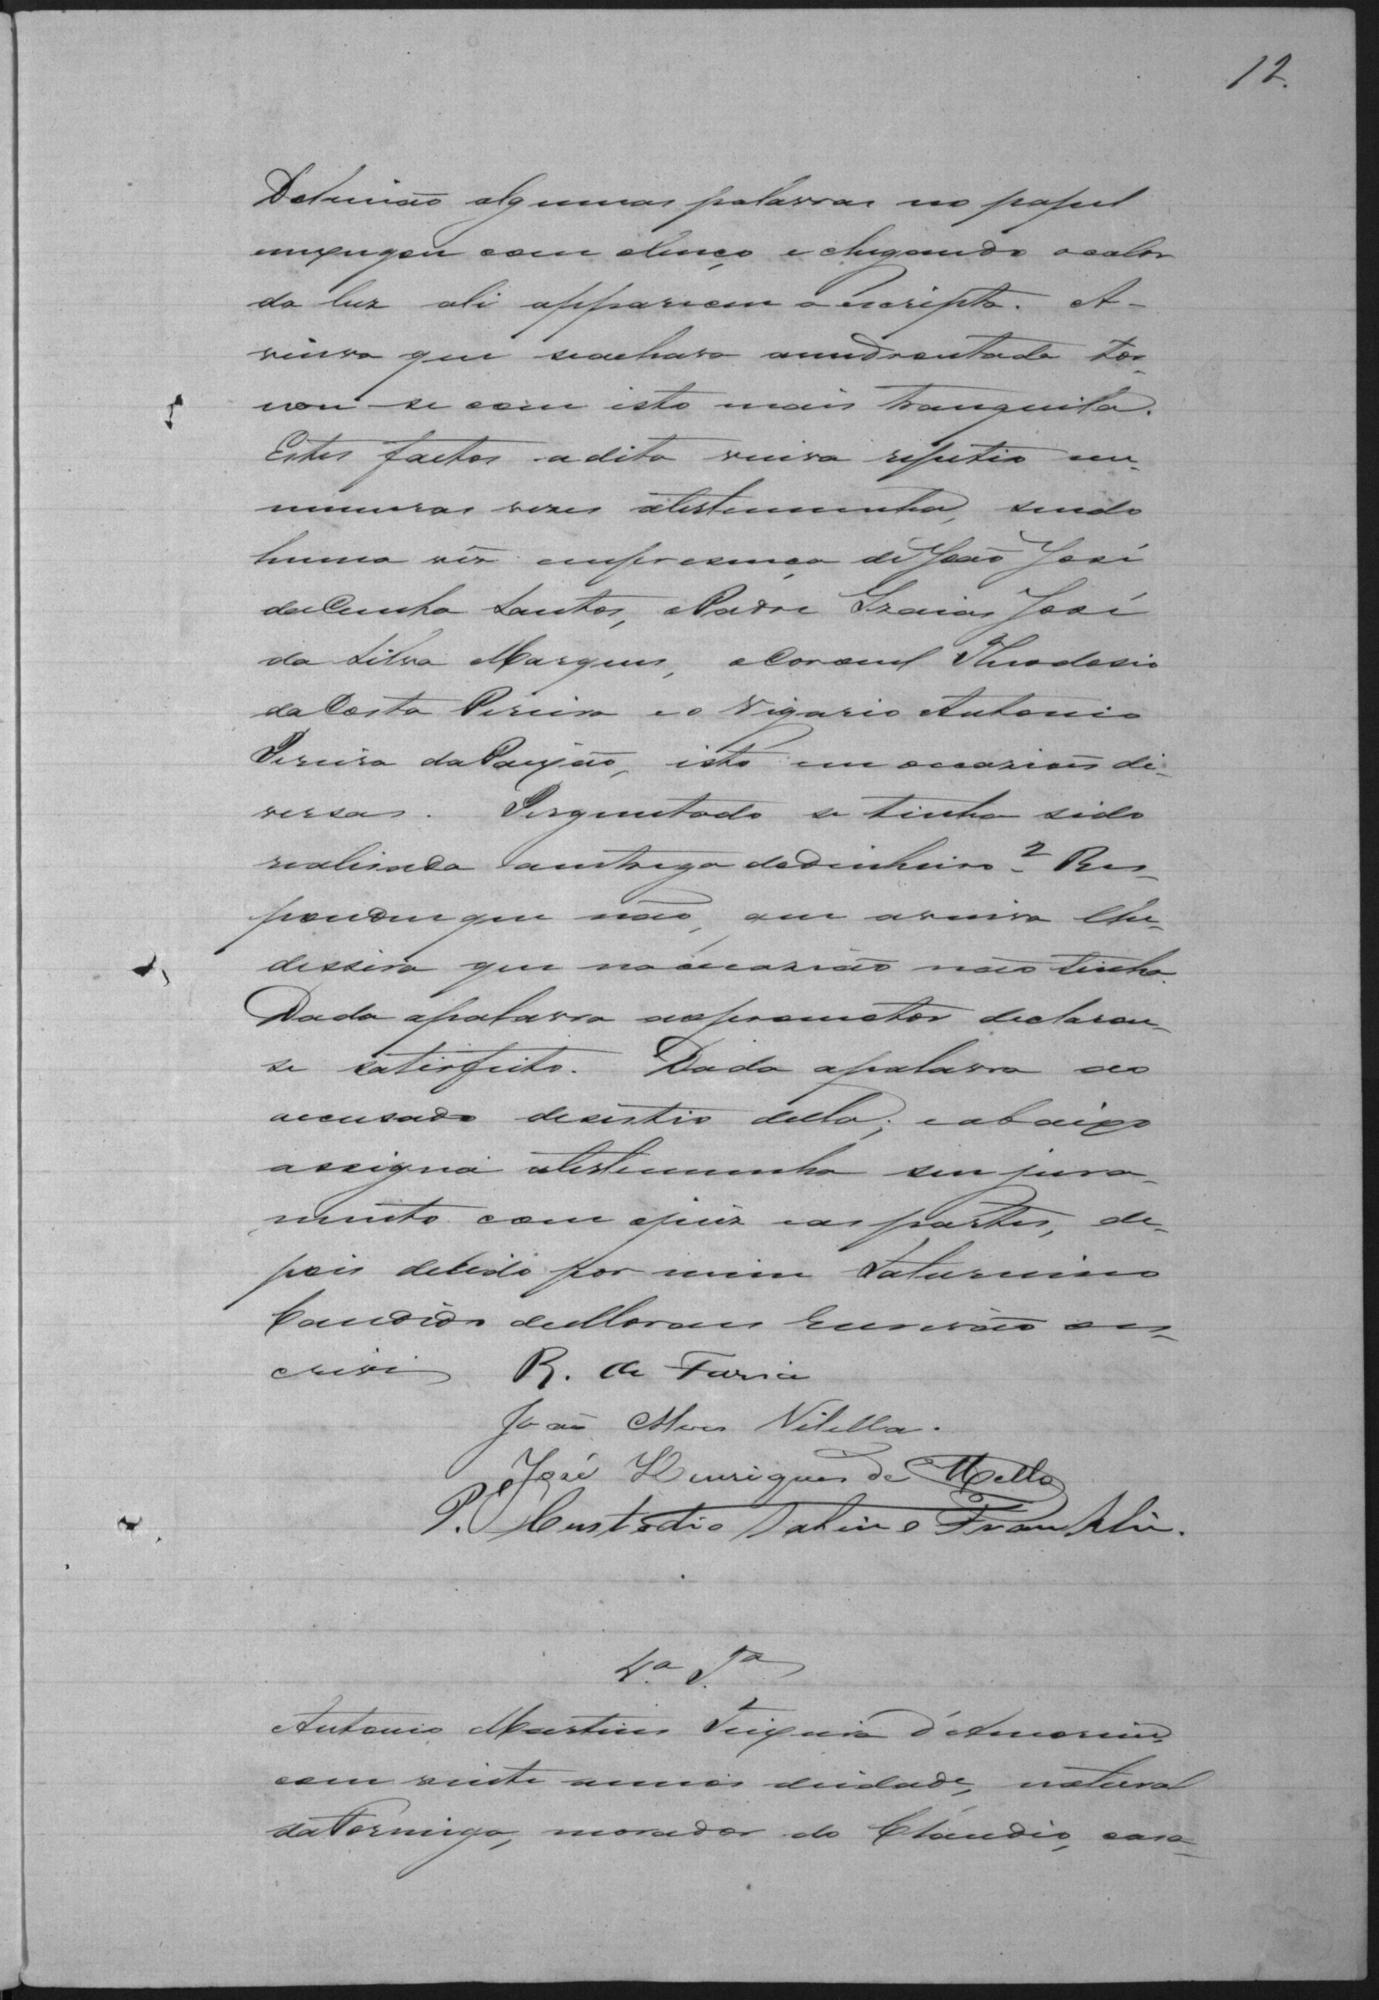 12.
algumas palavras no papel
enxugou com olenço e chegando o calor
da luz ali appareceu o escripto. A
viuva que seachava amedrontada tor-
nou-se com isto mais tranquila.
Estes factos adita viuva repetio
vezes atestemunha, sendo
huma vez empresença de João José
daCunha Santos, oPadre Izaias José
da Silva Marques, oCoronel Theodosio
daCosta Pereira e o Vigario Antonio
Pereira daPaixão, isto em occazioẽs di-
versas. Perguntado se tinha sido
realisada aentrega dodinheiro? Res-
pondeu que não, que aviuva lhe
dissera que naoccazião não tinha.
Dada apalavra aopromotor declarou-
se satisfeito. Dada apalavra ao
accusado desistio della; eabaixo
assigna atestemunha seu jura-
mento com ojuiz eas partes, de-
pois delido por mim Saturnino
Candido deMoraes Escrivão oes-
crivi R. de Faria
João Alves Vilella.
José Henriques de Mello
P. Custodio Sabino Franklin.
4.a T.a
Antonio Martins Teixeira d'Amorim
com vinte annos deidade, natural
daFormiga, morador do Claudio, casa-